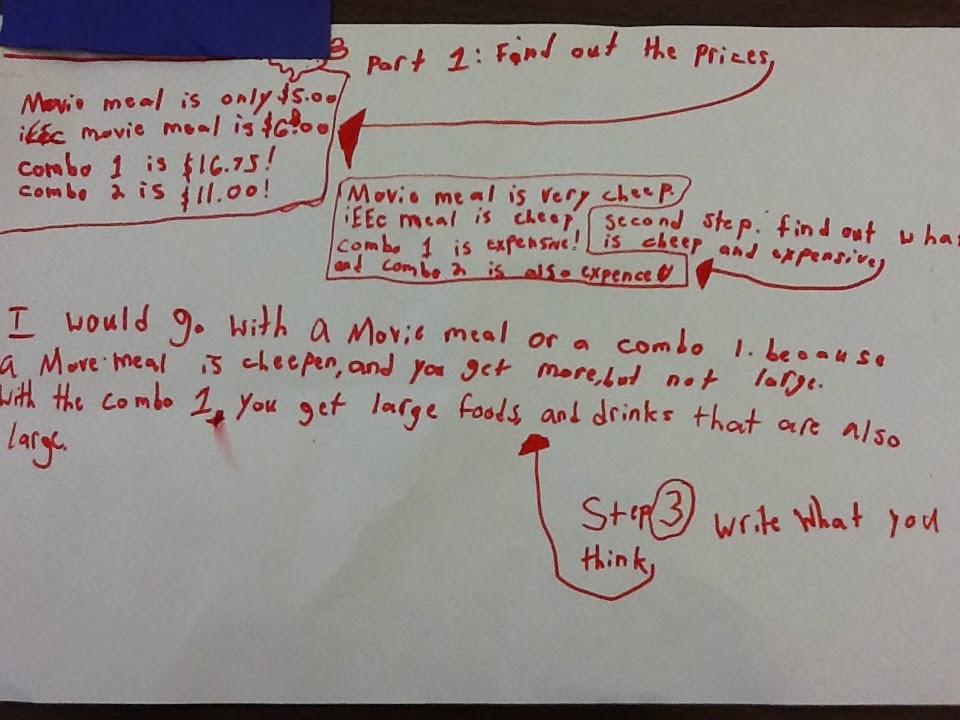 Part 1: Find out the prices,
Movie meal is only $5.00
iEEc movie meal is $6.00
combo 1 is $16.75!
combo 2 is $11.00!
Movie meal is very cheep.
iEEc meal is cheep
combo 1 is expensive!
and combo 2 is also expence
second step. find out what
is cheep and expensive,
I would go with a Movie meal or a combo 1. because
a Move meal is cheepen, and you get more, but not large.
with the combo 1, you get large foods, and drinks that are also
large.
Step 3 write what you
think,